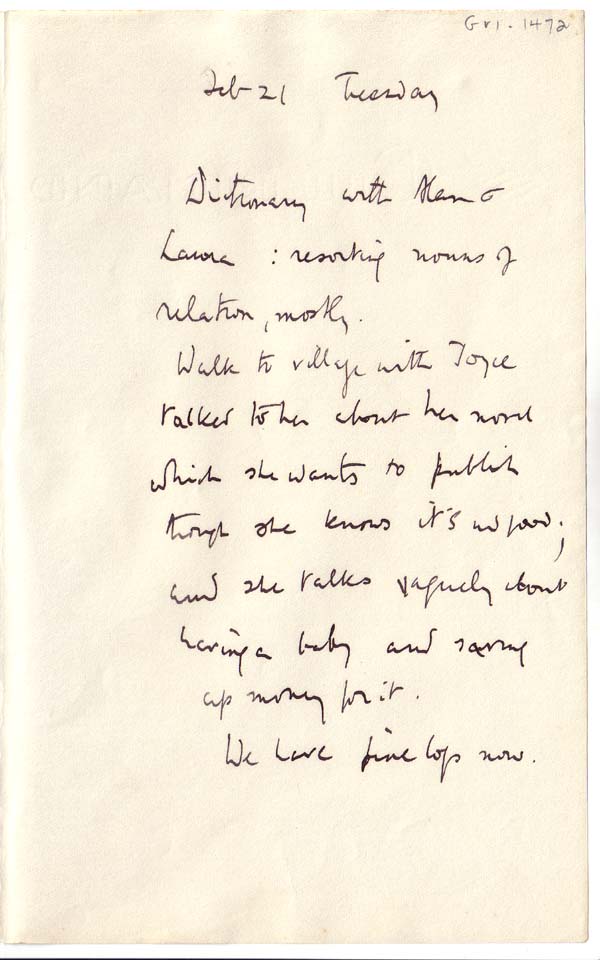 Gri. 1472
Feb 21 Tuesday
Dictionary with Alan &
Laura : resorting nouns of
relation, mostly.
Walk to village with Joyce
talked to her about her novel
which she wants to publish
though she knows it's no good;
and she talks vaguely about
having a baby and saving
up money for it.
We have fine logs now.